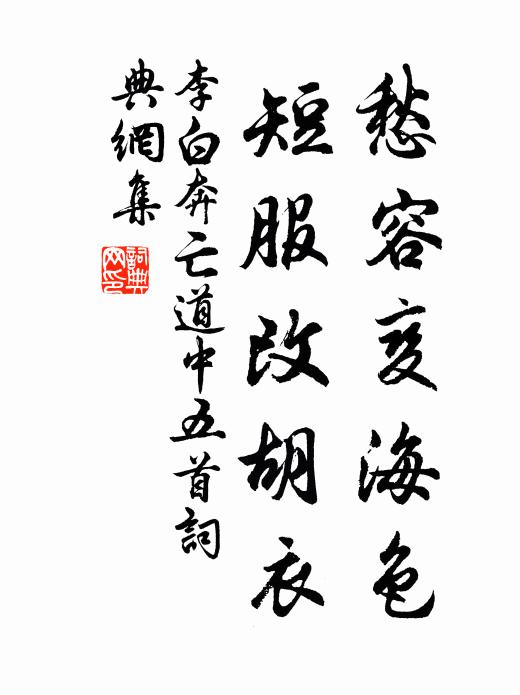 愁容变海色
短服改胡衣
李白奔亡道中五首詞
典網集
詞典
网印